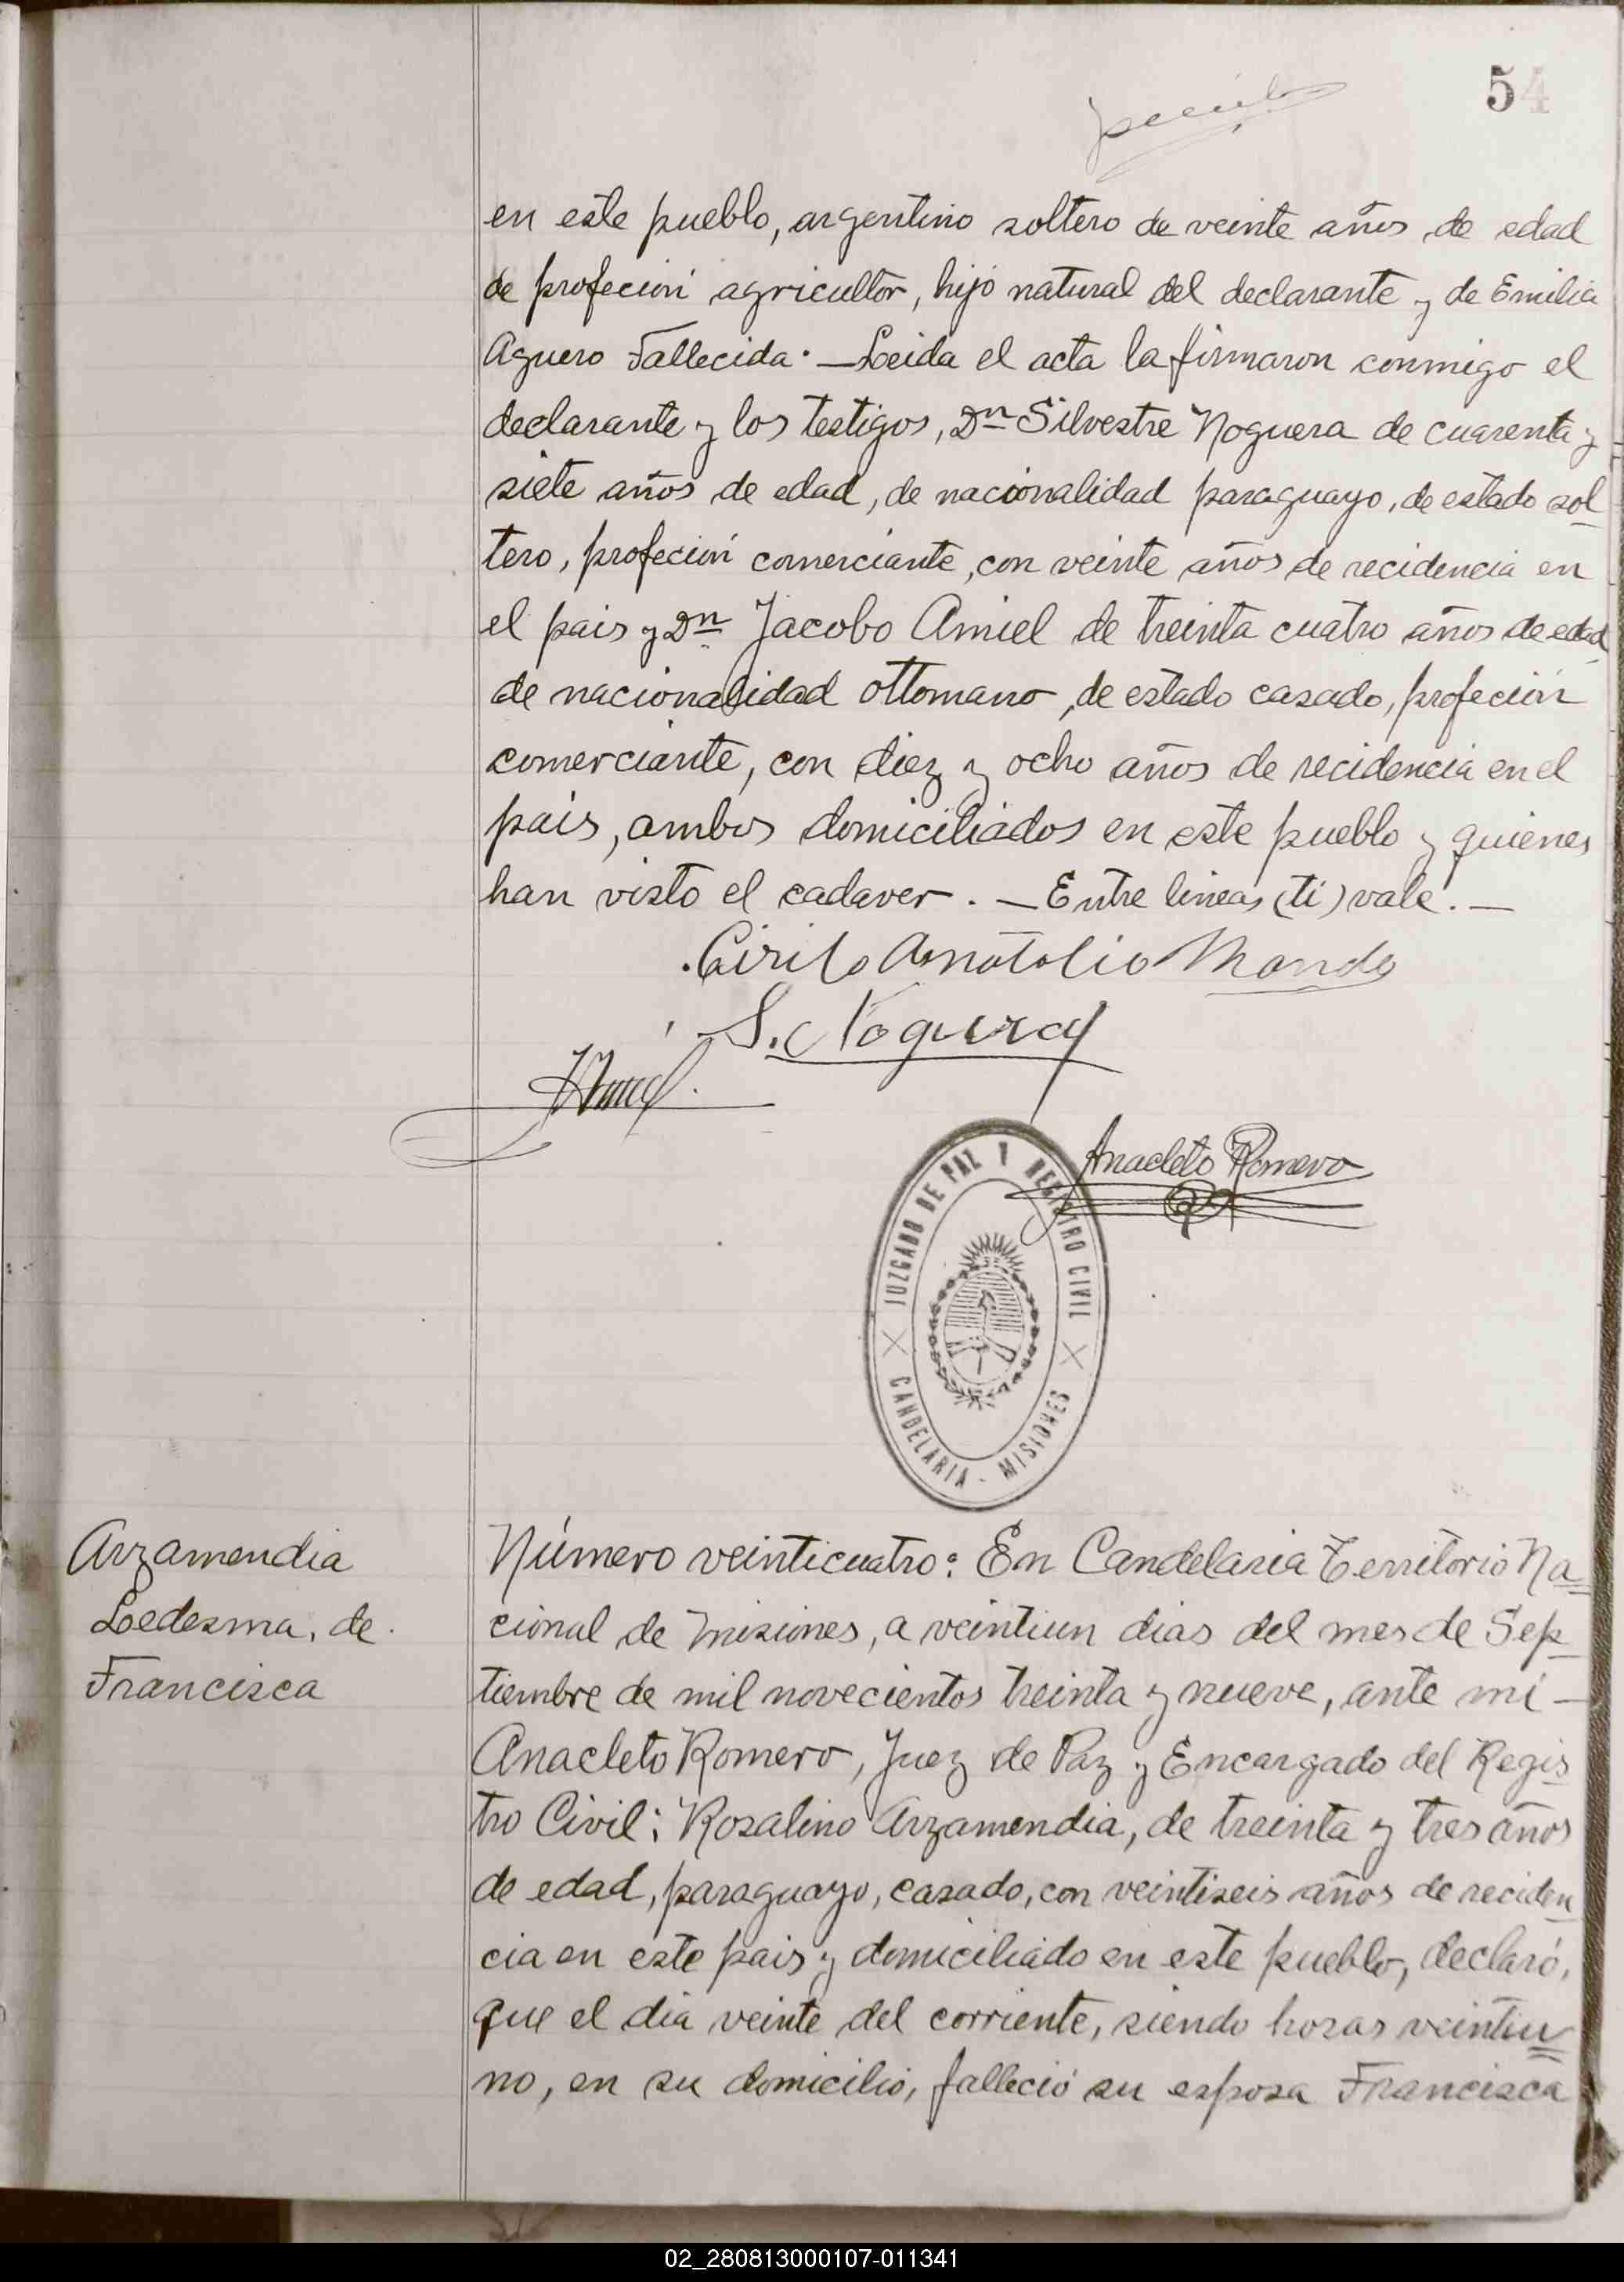 54
en este pueblo, argentino soltero de veinte años, de edad
de profeción agricultor, hijo natural del declarante y de Emilia
Aguero Fallecida. — Leida el acta la firmaron conmigo el
declarante y los testigos, Dn Silvestre Noguera de cuarenta y
siete años de edad, de nacionalidad paraguayo, de estado sol
tero, profeción comerciante, con veinte años de recidencia en
el pais y Dn Jacobo Amiel de treinta cuatro años de edad
de nacionalidad ottomano, de estado casado, profeción
comerciante, con diez y ocho años de recidencia en el
pais, ambos domiciliados en este pueblo y quienes
han visto el cadaver. — Entre lineas (ti) vale. —
Cirilo Anatolio
S. Noguera
Anacleto Romero
JUZGADO DE PAZ Y REGISTRO CIVIL
CANDELARIA - MISIONES
Arzamendia
Ledesma, de
Francisca
Número veinticuatro: En Candelaria Territorio Na
cional de Misiones, a veintiun dias del mes de Sep
tiembre de mil novecientos treinta y nueve, ante mi —
Anacleto Romero, Juez de Paz y Encargado del Regis
tro Civil; Rosalino Arzamendia, de treinta y tres años
de edad, paraguayo, casado, con veintiseis años de reciden
cia en este pais y domiciliado en este pueblo, declaró,
que el dia veinte del corriente, siendo horas veintiu
no, en su domicilio, falleció su esposa Francisca
02_280813000107-011341